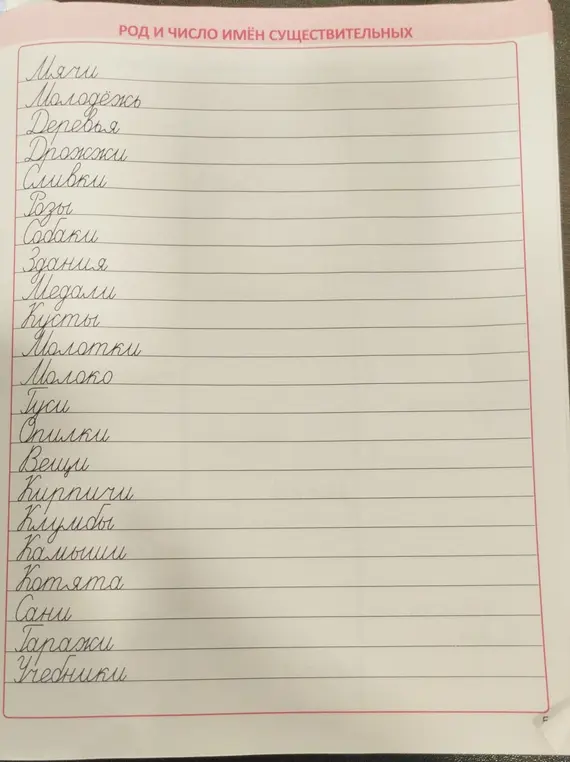 РОД И ЧИСЛО ИМЁН СУЩЕСТВИТЕЛЬНЫХ
Мячи
Молодёжь
Деревья
Дрожжи
Сливки
Розы
Собаки
Здания
Медали
Кусты
Молотки
Молоко
Гуси
Опилки
Вещи
Кирпичи
Клумбы
Камыши
Котята
Сани
Гаражи
Учебники